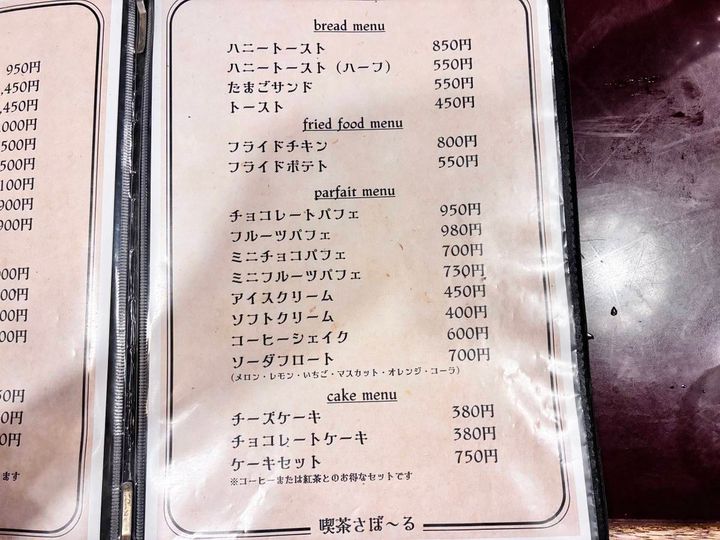 950円
,450円
,450円
000円
500円
500円
100円
900円
900円
000円
00円
00円
00円
50円
0円
0円
ます
bread menu
ハニートースト 850円
ハニートースト（ハーフ） 550円
たまごサンド 550円
トースト 450円
fried food menu
フライドチキン 800円
フライドポテト 550円
parfait menu
チョコレートパフェ 950円
フルーツパフェ 980円
ミニチョコパフェ 700円
ミニフルーツパフェ 730円
アイスクリーム 450円
ソフトクリーム 400円
コーヒーシェイク 600円
ソーダフロート 700円
（メロン・レモン・いちご・マスカット・オレンジ・コーラ）
cake menu
チーズケーキ 380円
チョコレートケーキ 380円
ケーキセット 750円
※コーヒーまたは紅茶とのお得なセットです
喫茶さぼ～る